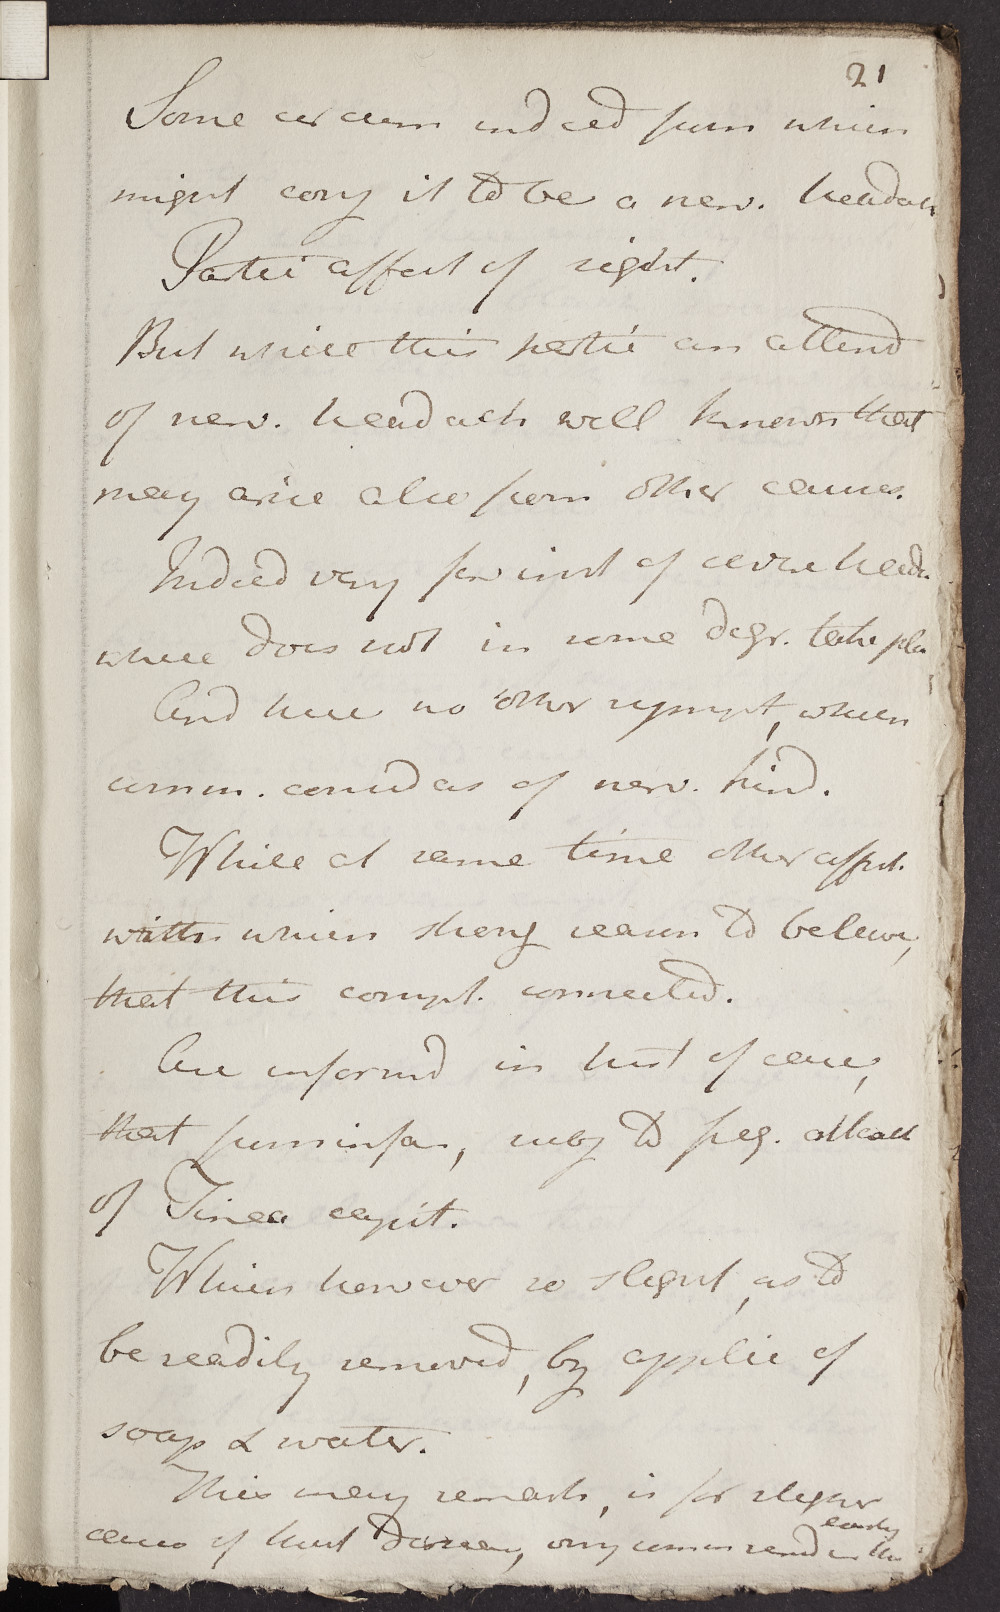 21
Some circum indeed from which
might conj it to be a nerv. headach
Partic affect of sight.
But while this partic an attend
of nerv. headach well known that
may arise also from other causes.
Indeed very few inst of severe head.
where does not in some degr. take pla
And here no other sympt, when
comm. consid as of nerv. kind.
While at same time other affect.
with which strong reason to believe,
that this compl. connected.
Are informd in hist of case,
that from infan, subj to freq. attack
of Tinea capit.
Which however so slight, as to
be readily removed, by applic of
soap & water.
This may remark, is for slighter
cases of that Disease, very common remd in the